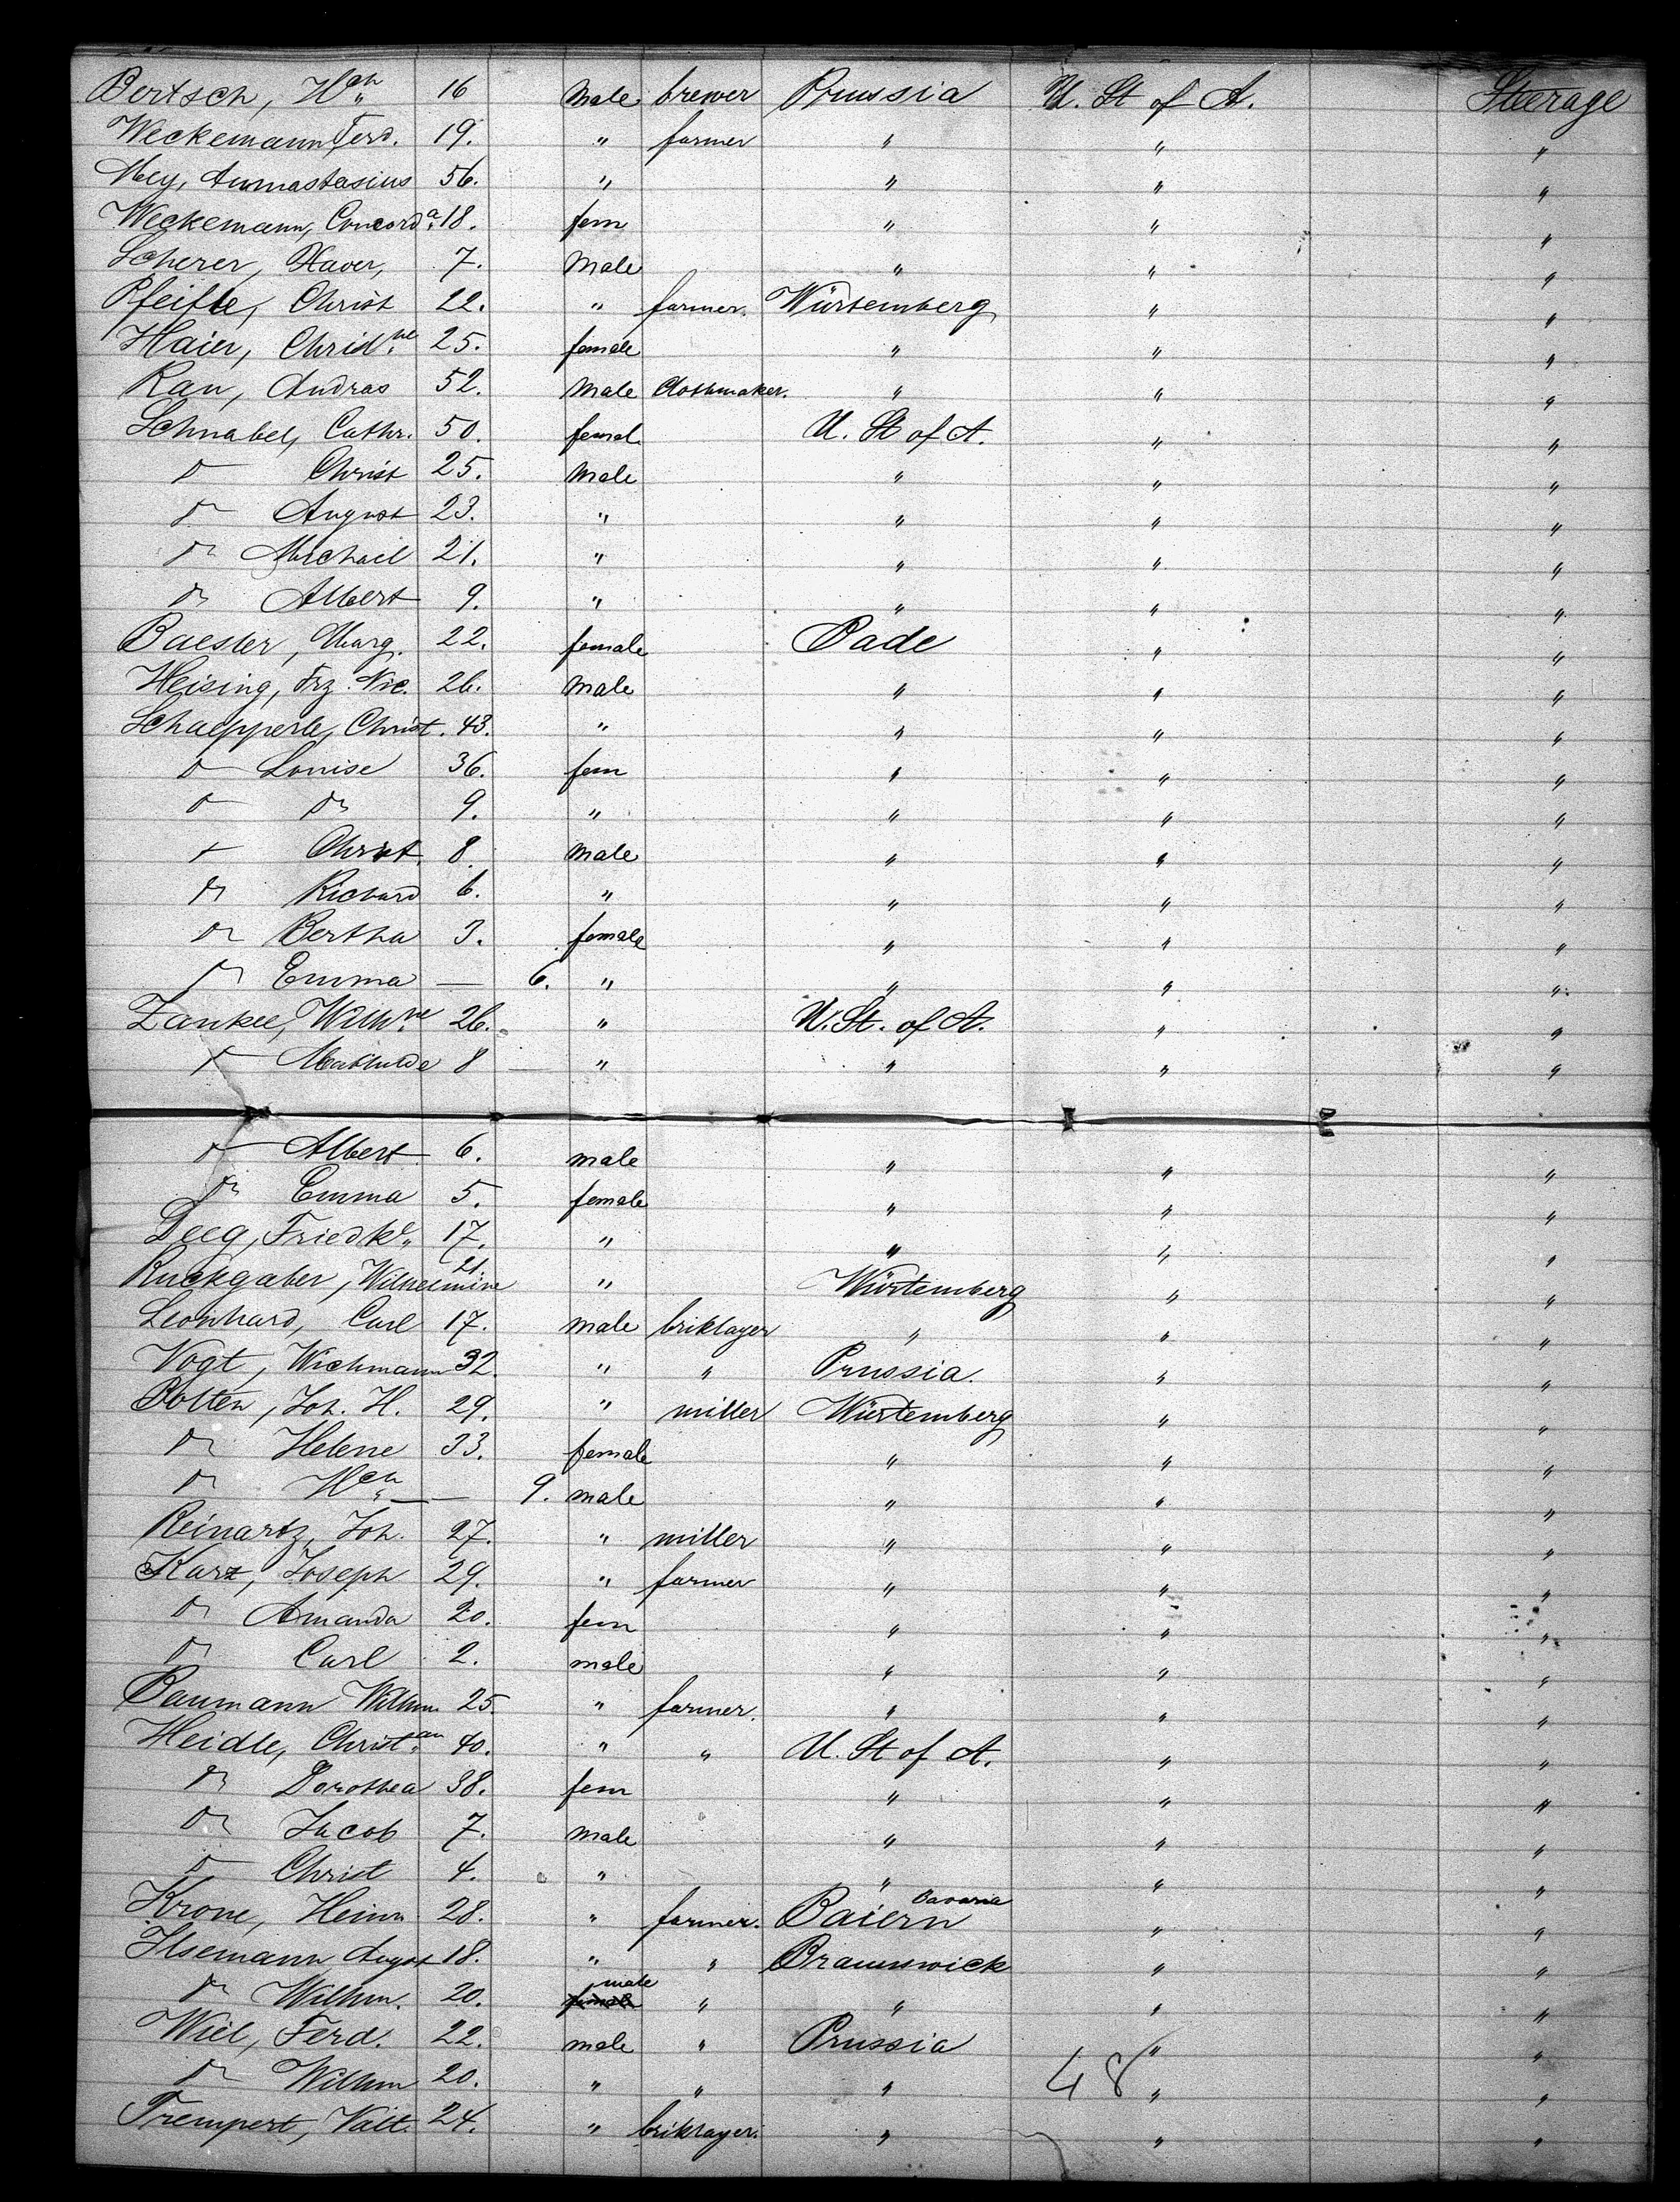 Bertsch, Hch 16 male brewer Prussia U. St of A. Steerage
Weckemann, Ferd. 19. " farmer " " "
Mey, Annastasius 56. " " " "
Weckemann, Concorda 18. fem " " "
Scherer, Xaver, 7. male " " "
Pfeifle, Christ 22. " farmer. Würtemberg " "
Haier, Christne 25. female " " "
Rau, Andras 52. male Clothmaker. " " "
Schnabel, Cathr. 50. femal U. St of A. " "
do Christ 25. male " " "
do August 23. " " " "
do Michael 21. " " " "
do Albert 9. " " " "
Baesler, Marg. 22. female Bade " "
Heising, Frz. Nic. 26. male " " "
Schaepperle, Christ. 43. " " " "
do Louise 36. fem " " "
do do 9. " " " "
do Christ. 8. male " " "
do Richard 6. " " " "
do Bertha 3. female " " "
do Emma — 6. " " " "
Zankel, Wilhne 26. " U. St. of A. " "
do Mathilde 8 — " " " "
do Albert 6. male " " "
do Emma 5. female " " "
Deeg, Friedke 17. " " " "
Ruckgaber, Wilhelmine 21. " Würtemberg " "
Leonhard, Carl 17. male briklayer " " "
Vogt, Wichmann 32. " " Prussia. " "
Bolten, Joh. H. 29. " miller Würtemberg " "
do Helene 33. female " " "
do Hch — 9. male " " "
Reinartz, Joh. 27. " miller " " "
Karz, Joseph 29. " farmer " " "
do Amanda 20. fem " " "
do Carl 2. male " " "
Baumann Wilhm 25. " farmer. " " "
Heidle, Christian 40. " " U. St of A. " "
do Dorothea 38. fem " " "
do Jacob 7. male " " "
do Christ 4. " " " "
Krone, Heinr 28. " farmer. Baiern Bavaria " "
Ilsemann, August 18. " " Braunswick " "
do Wilhm. 20. female male " " " "
Wiel, Ferd. 22. male " Prussia " "
do Wilhm 20. " " " 48 " "
Trempert, Valt. 24. " briklayer. " " "